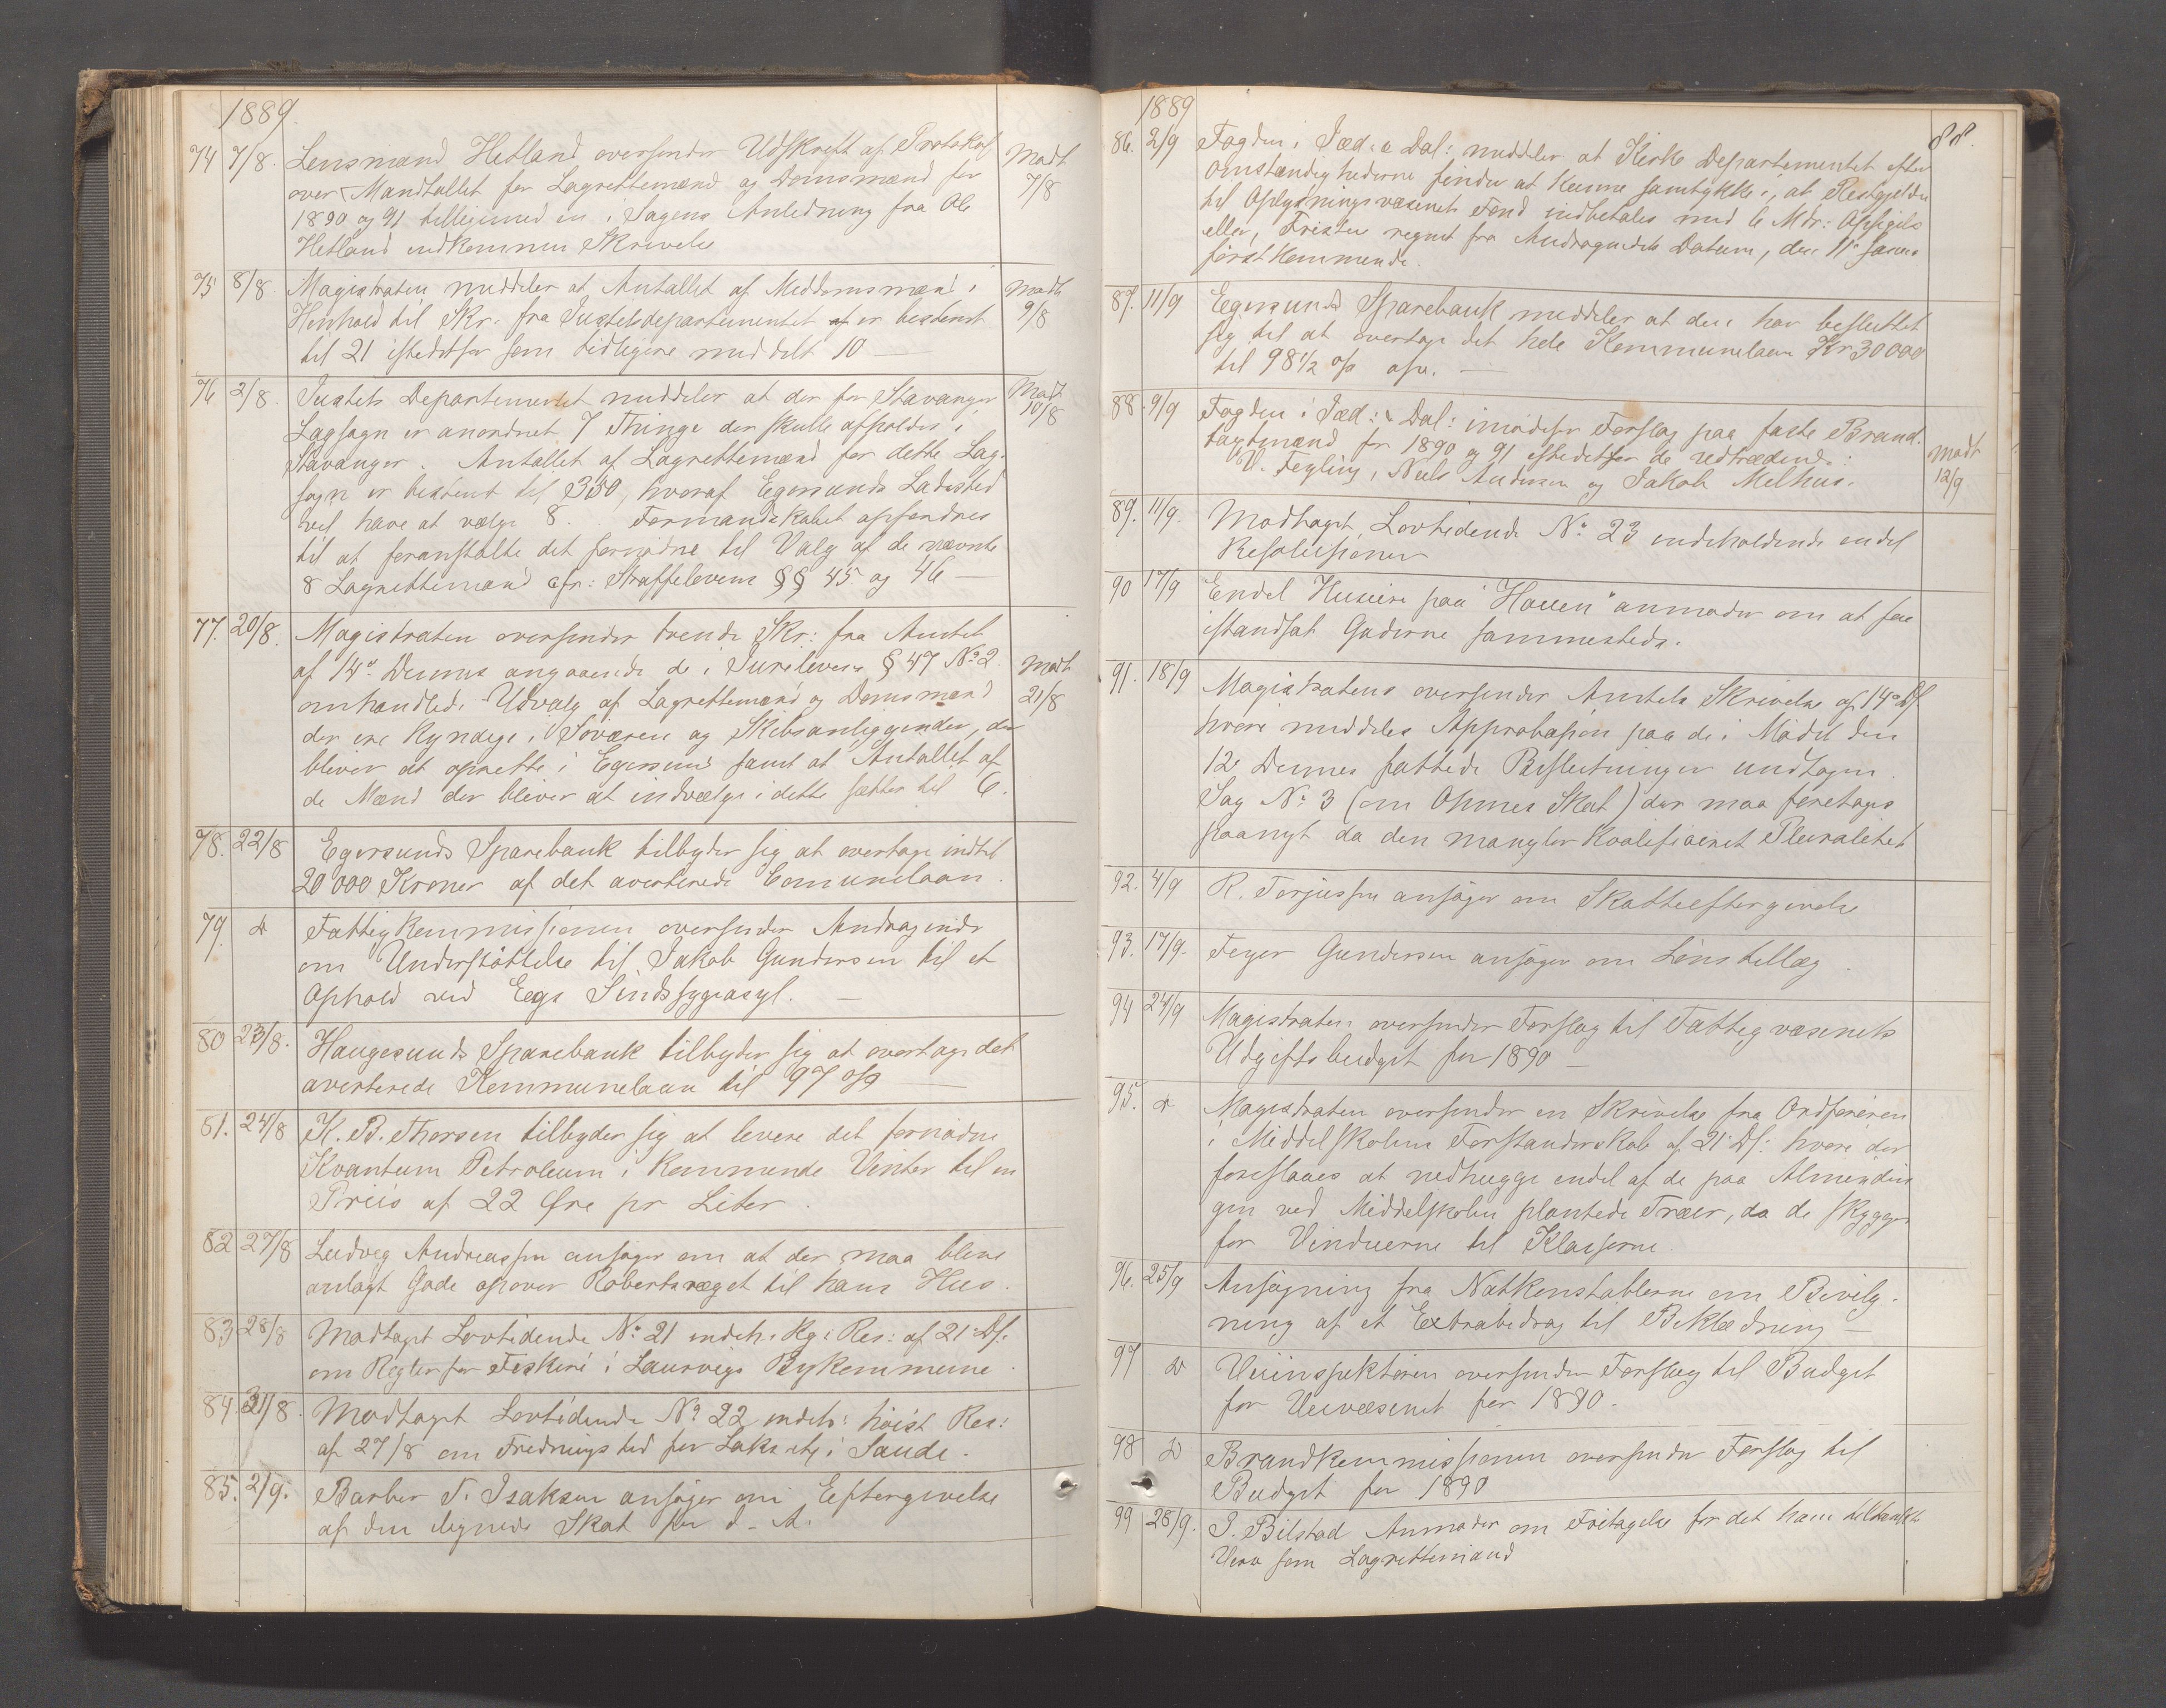 1889.
74 7/8. Lensmand Hetland oversender Udskrift af Protokol Modt
over Mandtallet for Lagrettemænd og Domsmænd for 7/8
1890 og 91 tilligemed en i Sagens Anledning fra Ole
Hetland indkommen Skrivelse
75 8/8. Magistraten meddeler at Antallet af Meddomsmænd i Modt
Henhold til Skr. fra Justitsdepartementet er bestemt 9/8
til 21 istedetfor som tidligere meddelt 10 —
76 2/8. Justits Departementet meddeler at der for Stavanger Modt
Lagsogn er anordnet 7 Thinge der skulle afholdes i 10/8
Stavanger. Antallet af Lagrettemænd for dette Lag-
sogn er bestemt til 350, hvoraf Egersunds Ladested
vil have at vælge 8. Formandskabet opfordres
til at foranstalte det fornødne til Valg af de nævnte
8 Lagrettemænd cfr: Straffeloven §§ 45 og 46 —
77. 20/8. Magistraten oversender trende Skr: fra Amtet
af 14de Dennes angaaende de i Jureloven § 47 No 2 Modt
omhandlede Udvalg af Lagrettemænd og Domsmænd 21/8
der ere kyndige i Søvæsen og Skibsanliggender, der
bliver at oprette i Egersund samt at Antallet af
de Mænd der bliver at indvælge i dette sættes til 6.
78. 22/8 Egersunds Sparebank tilbyder sig at overtage indtil
20 000 Kroner af det averterede Comunelaan.
79. d Fattigkommissionen oversender Andragende
om Understøttelse til Jakob Gundersen til et
Ophold ved Eegs Sindssygeasyl. —
80 23/8. Haugesunds Sparebank tilbyder sig at overtage det
averterede Kommunelaan til 97 o/o —
81. 24/8 K. B. Thorsen tilbyder sig at levere det fornødne
Kvantum Petroleum i kommende Vinter til en
Priis af 22 Øre pr Liter.
82 27/8 Ludvig Andreassen ansøger om at der maa blive
anlagt Gade opover Robertsvæget til hans Hus.
83 28/8 Modtaget Lovtidende No 21 indeh. Kg: Res: af 21 ds:
om Regler for Fiskeri i Laurvigs Bykommune.
84. 31/8. Modtaget Lovtidende No 22 indeh: høist Res:
af 27/8 om Fredningstid for Laks etc i Saude.
85. 2/9. Barber T. Isaksen ansøger om Eftergivelse
af den lignede Skat for d. A.
1889 88.
86. 2/9 Fogden i Jæd: & Dal: meddeler at Kirke Departementet efter
Omstændighederne finder at kunne samtykke i, at Restgjelden
til Oplysningsvæsenets Fond indbetales med 6 Mdr: Opsigelse
eller, Fristen regnet fra Andragendets Datum, den 11te
førstkommende.
87. 11/9 Egersunds Sparebank meddeler at den har besluttet
sig til at overtage det hele Kommunelaan Kr 30 000
til 98 1/2 o/o —
88. 9/9 Fogden i Jæd: & Dal: imødeser Forslag paa faste Brand-
taxtmænd for 1890 og 91 istedetfor de udtrædende: Modt
V. Feyling, Niels Andersen og Jakob Melhus. 12/9
89. 11/9. Modtaget Lovtidende No 23 indeholdende endel
Resolusioner
90 17/9 Endel Husiere paa "Hauen" anmoder om at faa
istandsat Gaderne sammesteds.
91. 18/9 Magistraten oversender Amtets Skrivelse af 14de ds
hvori meddeles Approbasjon paa de i Mødet den
12te Dennes fattede Beslutninger undtagen
Sag No 3 (om Skat) der maa foretages
paanyt da den mangler kvalificeret Pluralitet
92. 4/9 R. Torjussen ansøger om Skatteeftergivelse
93. 17/9. Feyer Gundersen ansøger om Lønstillæg.
94 24/9 Magistraten oversender Forslag til Fattigvæsenets
Udgiftsbudget for 1890 —
95. d Magistraten oversender en Skrivelse fra Ordføreren
i Middelskolens Forstanderskab af 21 ds: hvori der
foreslaaes at nedhugge endel af de paa Almendin
gen ved Middelskolen plantede Træer, da de skygger
for Vinduerne til Klasserne.
96. 25/9 Ansøgning fra Natkonstablerne om Bevilg-
ning af et Extrabidrag til Beklædning —
97 d Veiinspektøren oversender Forslag til Budget
for Veivæsenet for 1890.
98 d Brandkommissionen oversender Forslag til
Budget for 1890
99 28/9. J. Bilstad Anmoder om Fritagelse for det ham tiltænkte
Verv som Lagrettemand